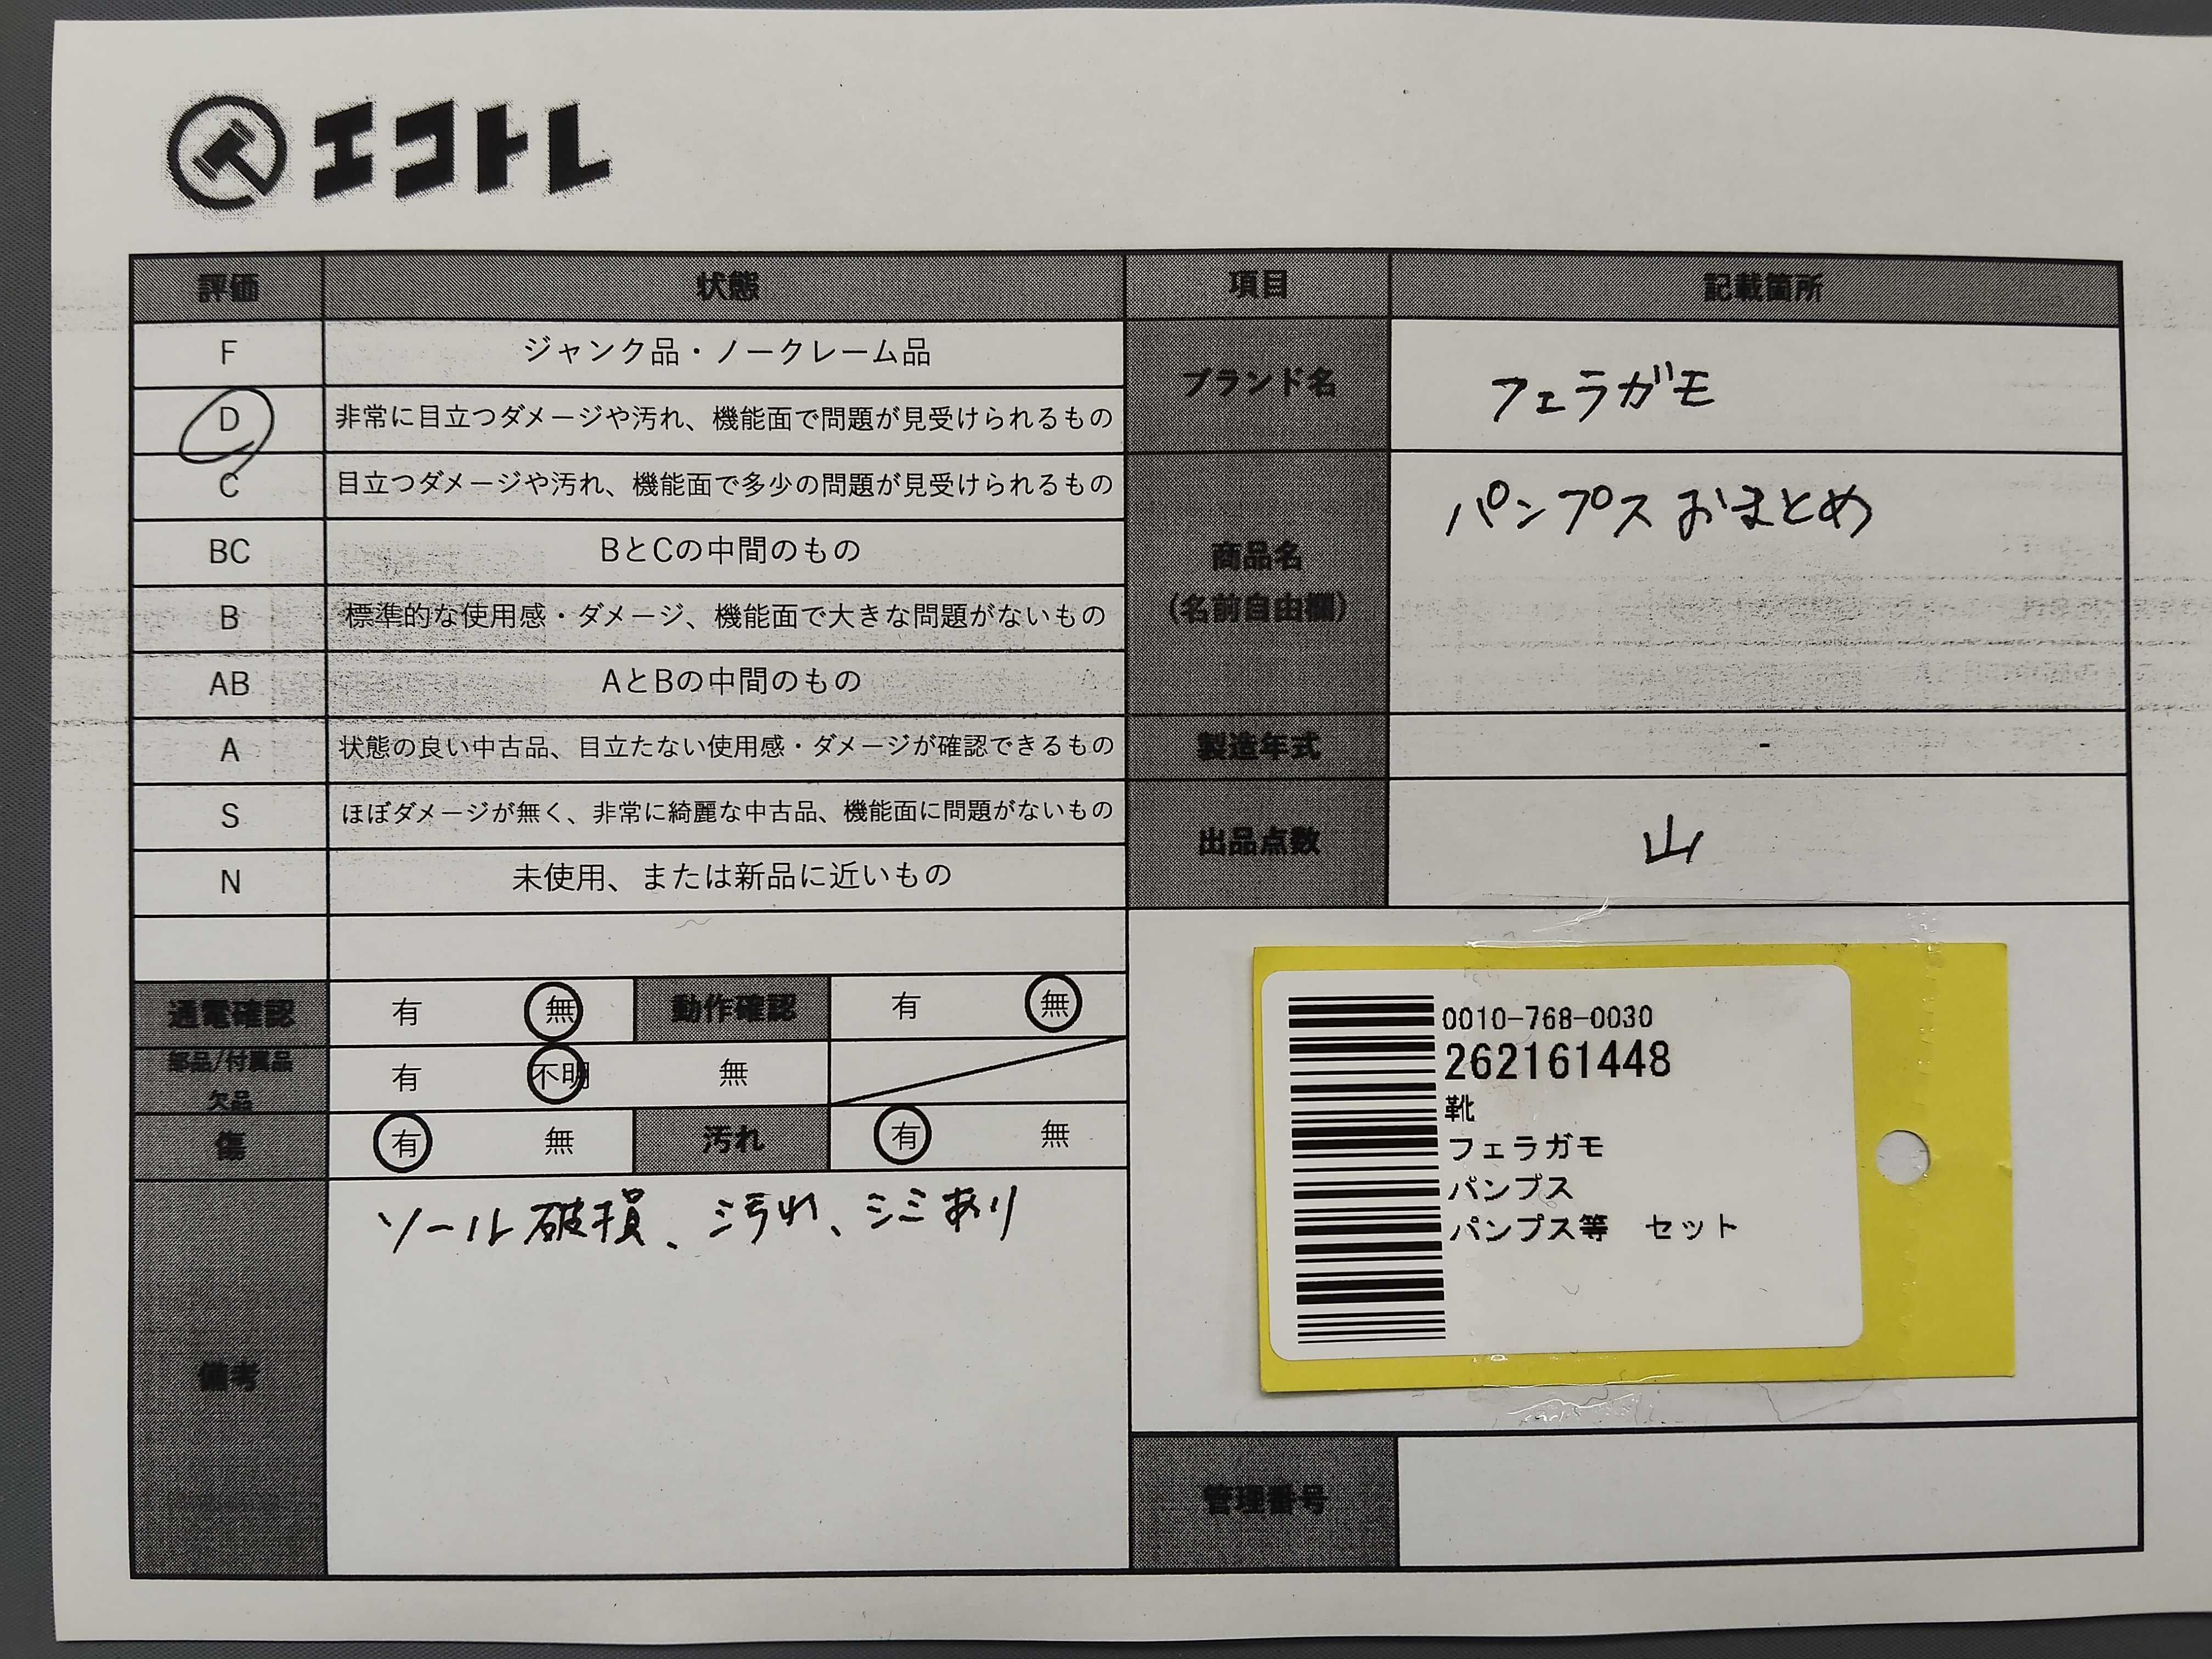 エコトレ
評価 状態 項目 記載箇所
F ジャンク品・ノークレーム品
D 非常に目立つダメージや汚れ、機能面で問題が見受けられるもの
C 目立つダメージや汚れ、機能面で多少の問題が見受けられるもの
BC BとCの中間のもの
B 標準的な使用感・ダメージ、機能面で大きな問題がないもの
AB AとBの中間のもの
A 状態の良い中古品、目立たない使用感・ダメージが確認できるもの
S ほぼダメージが無く、非常に綺麗な中古品、機能面に問題がないもの
N 未使用、または新品に近いもの
ブランド名 フェラガモ
商品名 パンプス おまとめ
(名前自由欄)
製造年式 -
出品点数 山
通電確認 有 無 動作確認 有 無
部品/付属品 有 不明 無
欠品
傷 有 無 汚れ 有 無
備考 ソール破損、汚れ、シミあり
0010-768-0030
262161448
靴
フェラガモ
パンプス
パンプス等 セット
管理番号